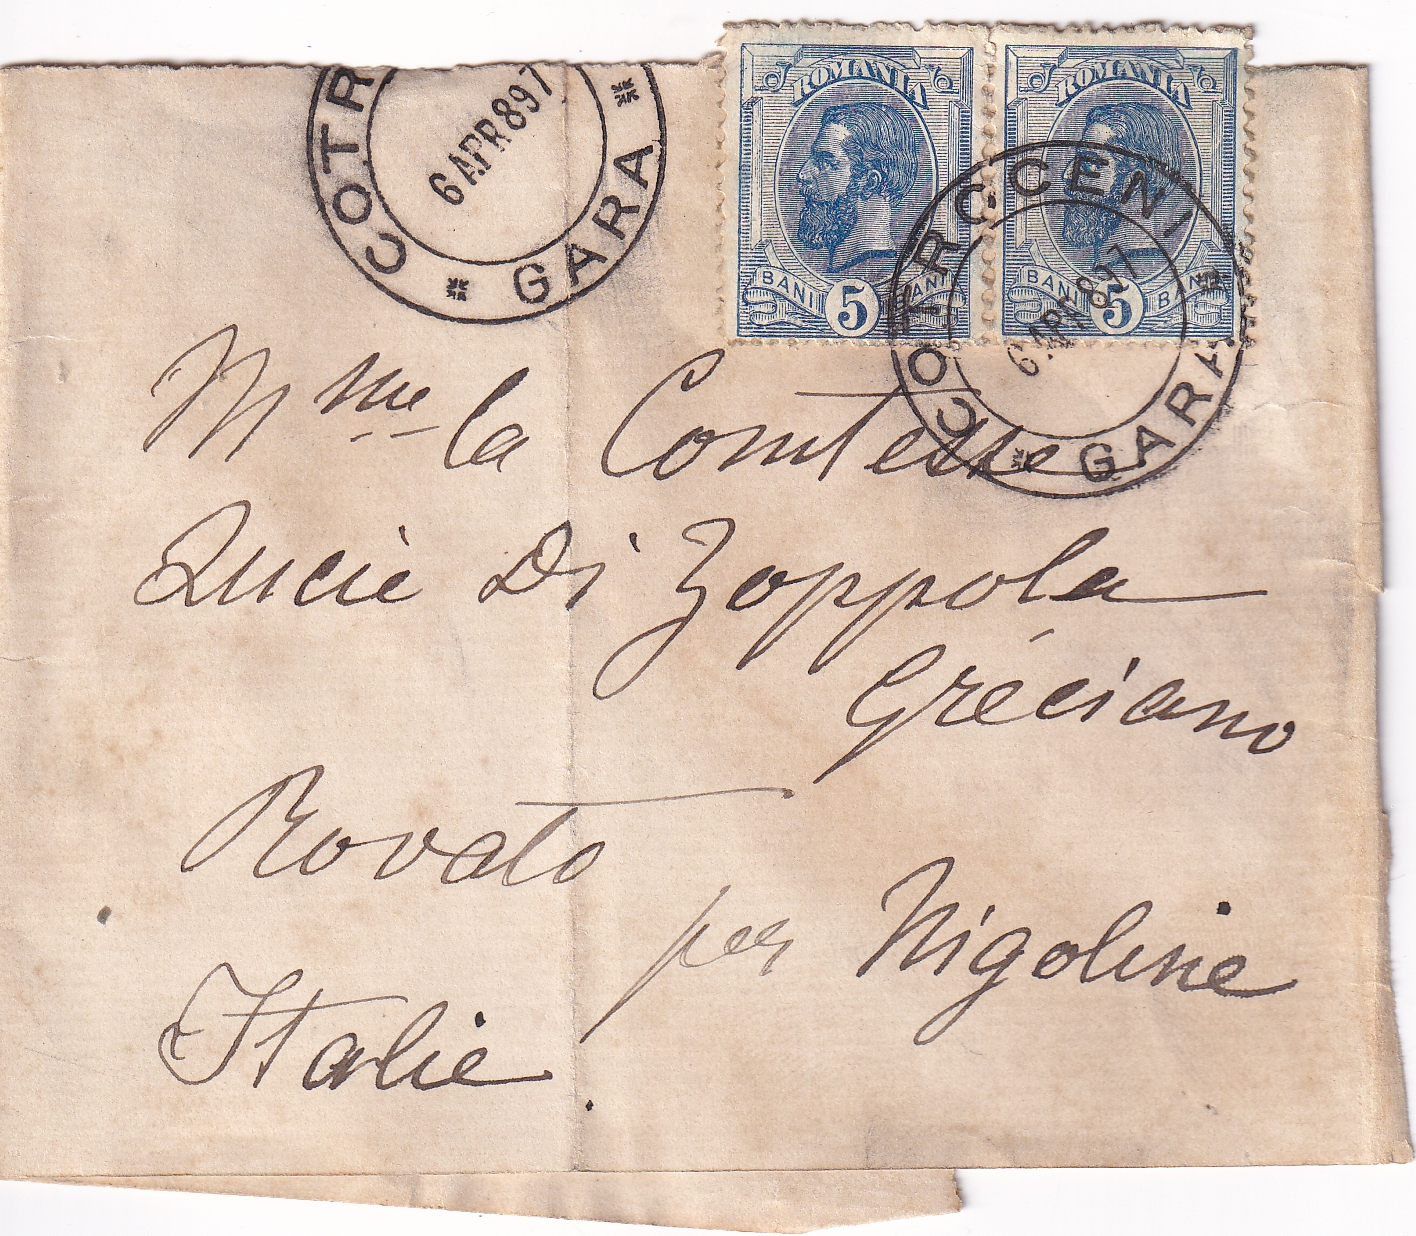 COTR
6 APR 897
GARA
ROMANIA
BANI 5 BANI
ROMANIA
BANI 5 BANI
COTROCENI
6 APR 897
GARA
Mme la Comtesse
Lucie Di Zoppola
Gréciano
Rovato
per Nigoline
Italie